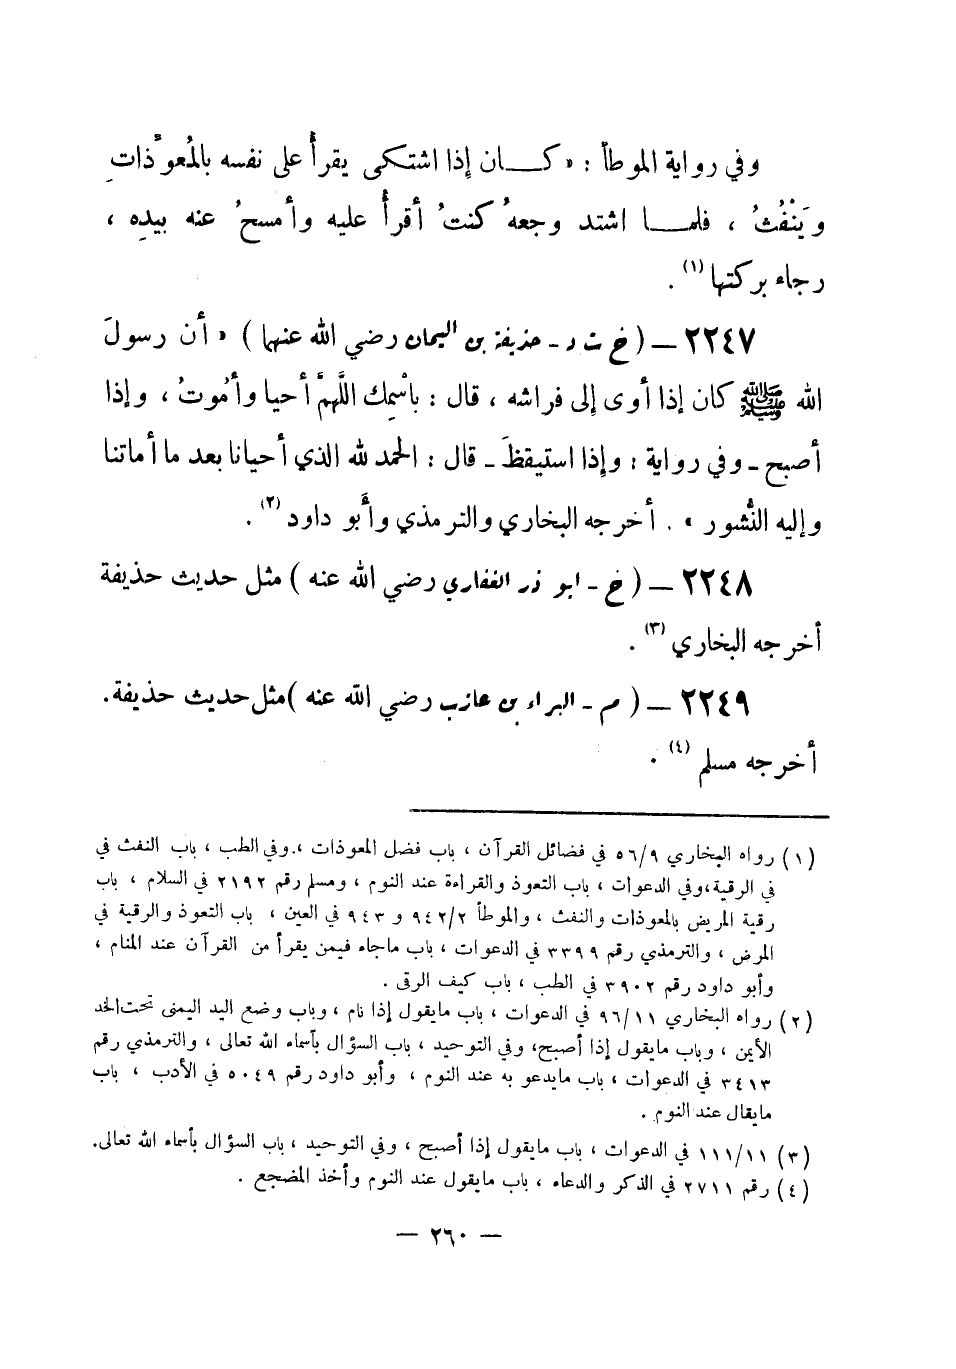 وفي رواية الموطأ : « كـــان إذا اشتكى يقرأُ على نفسه بالمُعوِّذاتِ
وَيَنْفُثُ ، فلمـــا اشتد وجعهُ كنتُ أقرأُ عليه وأمسحُ عنه بيدِه ،
رجاء بركتها (١) .
٢٢٤٧ – ( خ ت د - حذيفة بن اليمان رضي الله عنهما ) « أن رسولَ
الله ﷺ كان إذا أوى إلى فراشه ، قال : باسْمِك اللَّهمَّ أحيا وأمُوتُ ، وإذا
أصبح - وفي رواية : وإذا استيقظَ - قال : الحمد لله الذي أحيانا بعد ما أماتنا
وإليه النُّشور » . أخرجه البخاري والترمذي وأبو داود (٢) .
٢٢٤٨ – ( خ - ابو ذر الغفاري رضي الله عنه ) مثل حديث حذيفة
أخرجه البخاري (٣) .
٢٢٤٩ – ( م - البراء بن عازب رضي الله عنه ) مثل حديث حذيفة.
أخرجه مسلم (٤) .
(١) رواه البخاري ٥٦/٩ في فضائل القرآن ، باب فضل المعوذات ، وفي الطب ، باب النفث في
في الرقية ، وفي الدعوات ، باب التعوذ والقراءة عند النوم ، ومسلم رقم ٢١٩٢ في السلام ، باب
رقية المريض بالمعوذات والنفث ، والموطأ ٩٤٢/٢ و ٩٤٣ في العين ، باب التعوذ والرقية في
المرض ، والترمذي رقم ٣٣٩٩ في الدعوات ، باب ماجاء فيمن يقرأ من القرآن عند المنام ،
وأبو داود رقم ٣٩٠٢ في الطب ، باب كيف الرقى .
(٢) رواه البخاري ٩٦/١١ في الدعوات ، باب مايقول إذا نام ، وباب وضع اليد اليمنى تحت الخد
الأيمن ، وباب مايقول إذا أصبح ، وفي التوحيد ، باب السؤال بأسماء الله تعالى ، والترمذي رقم
٣٤١٣ في الدعوات ، باب مايدعو به عند النوم ، وأبو داود رقم ٥٠٤٩ في الأدب ، باب
مايقال عند النوم .
(٣) ١١١/١١ في الدعوات ، باب مايقول إذا أصبح ، وفي التوحيد ، باب السؤال بأسماء الله تعالى.
(٤) رقم ٢٧١١ في الذكر والدعاء ، باب مايقول عند النوم وأخذ المضجع .
– ٢٦٠ –